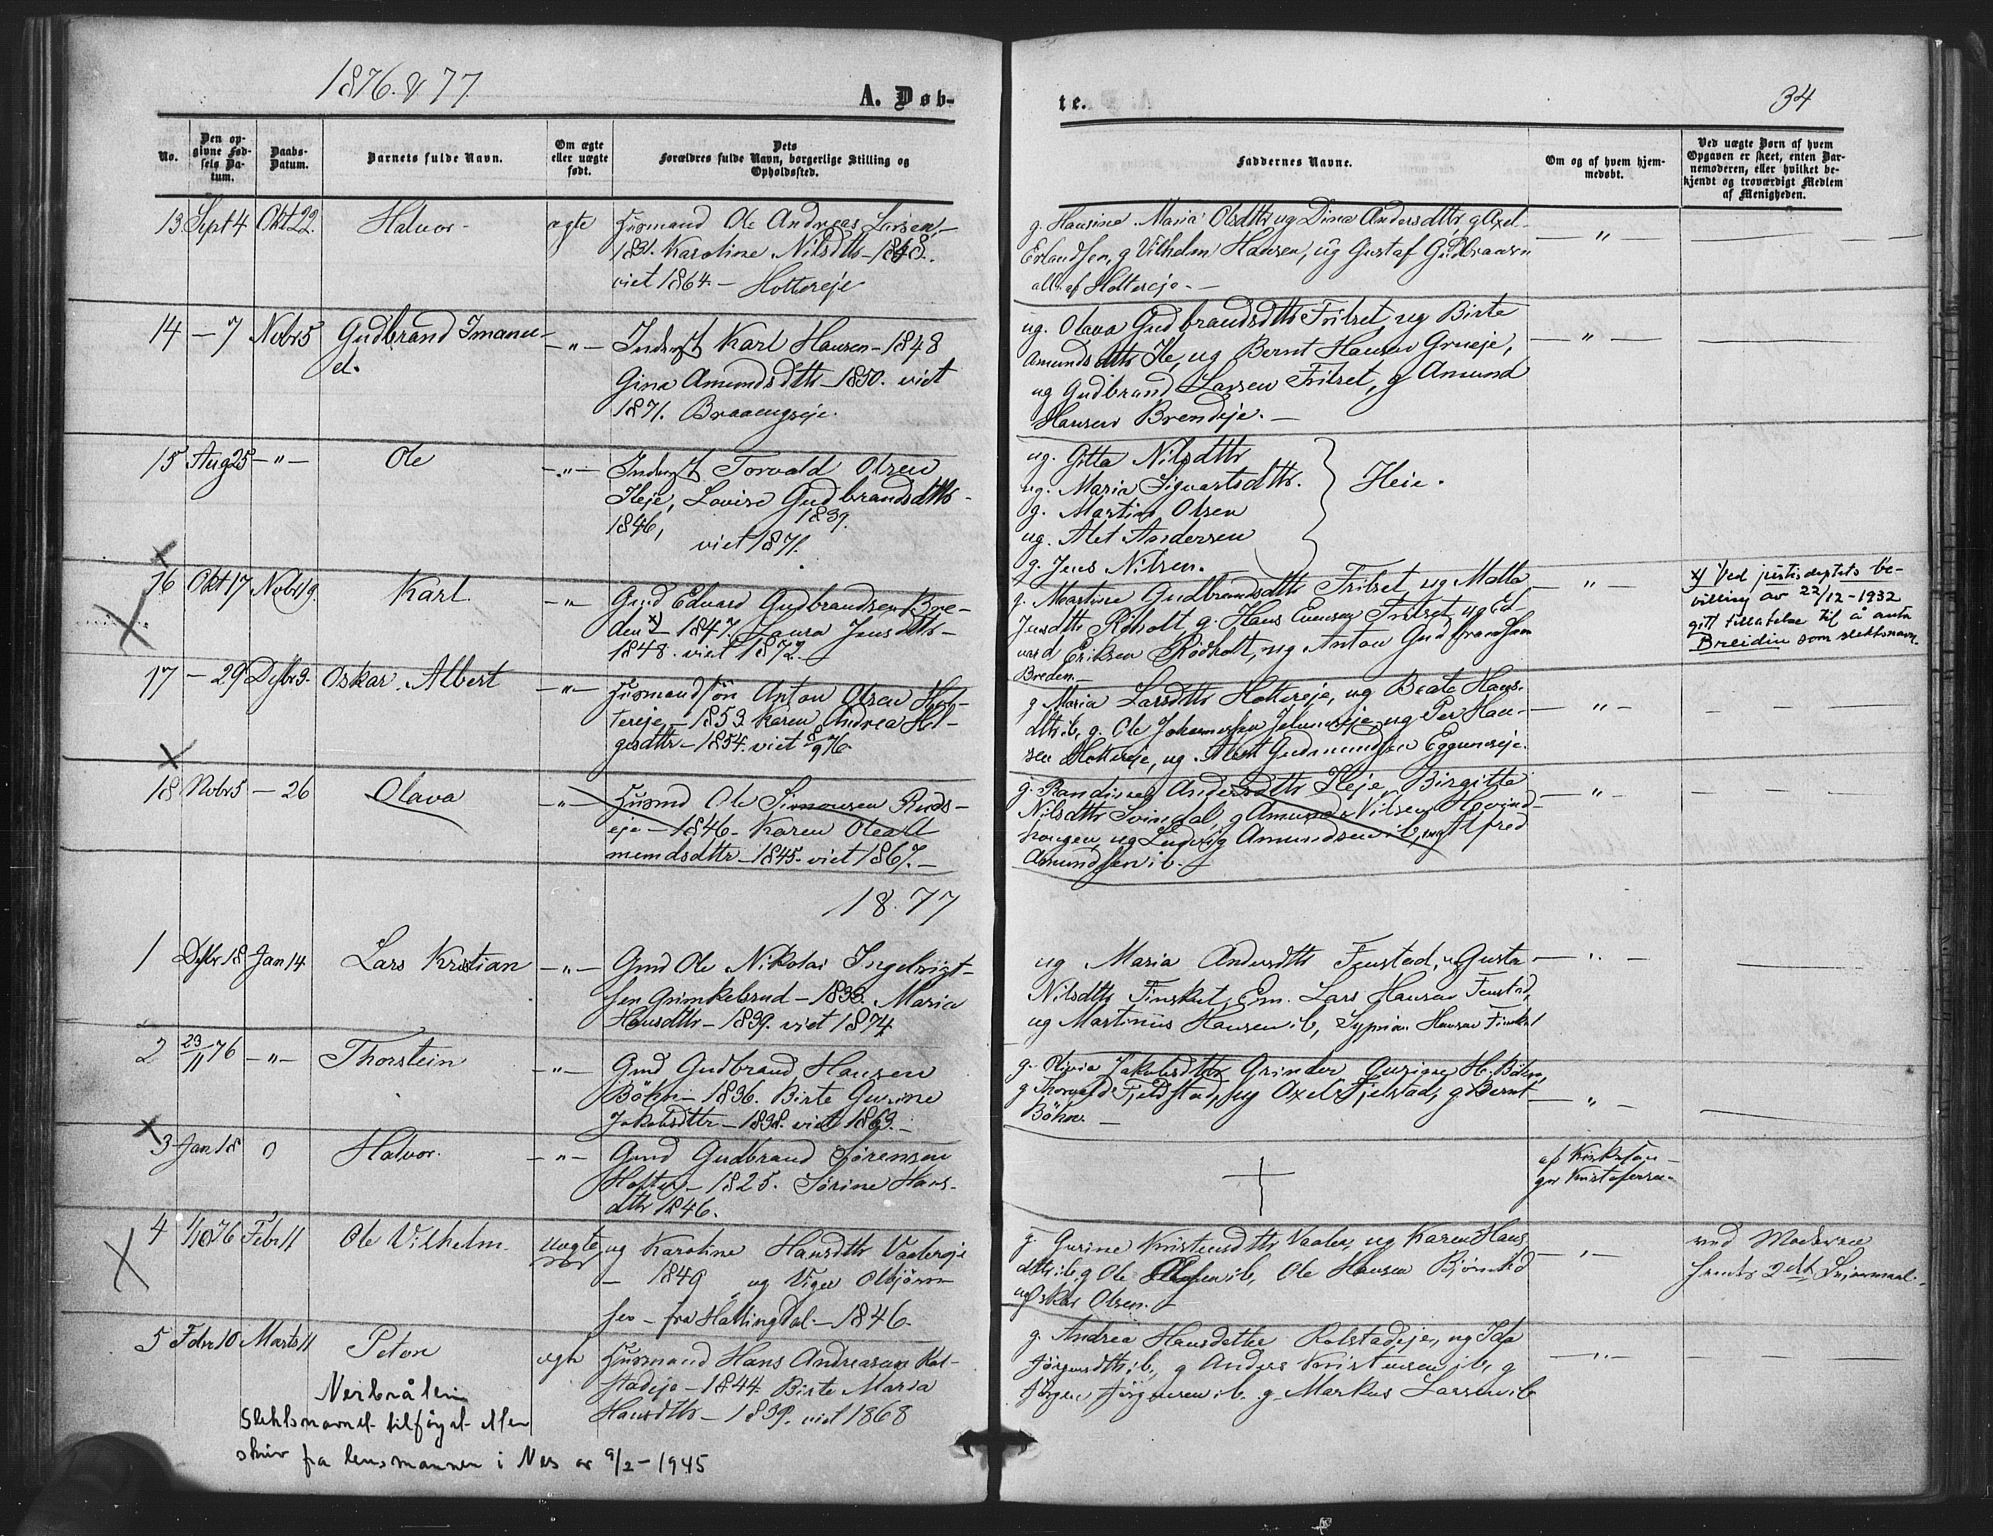 1876. & 77.
A. Døb-
te.
34
No.
Den op-
givne Fød-
sels Da-
tum.
Daabs-
Datum.
Barnets fulde Navn.
Om ægte
eller uægte
født.
Dets
Forældres fulde Navn, borgerlige Stilling og
Opholdssted.
Faddernes Navne.
Om og af hvem hjem-
medøbt.
Ved uægte Børn af hvem
Opgaven er skeet, enten Bar-
nemoderen, eller hvilket be-
kjendt og troværdigt Medlem
af Menigheden.
13 Sept 4 Okt 22. Halvor - ægte Husmand Ole Andreas Larsen,
Karoline Nilsdtr - 1848.
viet 1864. - Holtereje
g. Hansine Maria Olsdttr, ug Dina Andersdttr, g Axel
Erlandsen, g Vilhelm Hansen, ug Gustaf Gudbransen
all. af Holtereje. -
14 - 7 Nobr 5 Gudbrand Imanu-
el.
-"- Inderst Karl Hansen - 1848
Gina Amundsdttr - 1850. viet
1871. Braaengseje.
ug. Olava Gudbrandsdttr Fritset, ug Birte
Amundsdttr Ile, ug Bernt Hansen Grueje,
ug Gudbrand Larsen Fritset, g Amund
Hansen Brendeje. -
- " -
15 Aug 25 -"- Ole
-"- Inderst Torvald Olsen
Heje, Lovise Gudbrandsdttr -
1846, 1839.
viet 1871.
ug. Gitta Nilsdttr
ug. Maria Sigvartsdttr.
g. Martin Olsen
ug. Alet Andersen
g. Jens Nilsen.
Heie.
16 Okt 17 Nobr 19. Karl
-"- Gmd Edvard Gudbrandsen Bre-
den x) - 1847. Laura Jensdttr -
1848. viet 1872.
g. Martine Gudbrandsdttr Fritset, ug Malla
Jensdttr Röholt, g. Hans Evensen Fritset, ug Ed-
vard Eriksen Rödholt, ug Anton Gudbrandsen
Breden. -
- " -
x) Ved justisdeptets be-
villing av 22/12-1932
gitt tillatelse til å anta
Breidin som slektsnavn.
17 - 29 Desbr 3. Oskar Albert
-"- Husmandssön Anton Olsen Hol-
tereje - 1853. Karen Andrea Hel-
gesdttr - 1854. viet 8/9 76.
g Maria Larsdttr Holtereje, ug Beate Hans-
dttr ib, g. Ole Johannesen ug Per Han-
sen Holtereje, ug. Albert Gudmundsen Eggumseje.
- " -
18 Nobr 5 - 26 Olava
-"- Husmd Ole Simonsen Ruds-
eje - 1846 - Karen Olea
mundsdttr - 1845. viet 1867. -
g. Randi ug Andersdttr Heje, Birgitte
Nilsdttr Svindal, g Amund Nilsen Hovind-
haugen, ug Ludvig Amundsen ib, ug Alfred
Amundsen ib. -
- " -
18.77
1 Desbr 18 Jan 14 Lars Kristian
-"- Gmd Ole Nikolai Ingebrigt-
sen Grimkelsrud - 1833. Maria
Hansdttr - 1839. viet 1874
ug Maria Andersdttr Fenstad, ug Gusta
Nilsdttr Finskut, Em. Lars Hansen Fenstad,
ug Martinius Hansen ib, Syprian Hansen
- " -
2 23/11 76 -"- Thorstein
-"- Gmd Gudbrand Hansen
Böhn - 1836. Birte Gurine
Jakobsdttr - 1838. viet 1863. -
g. Olivia Jakobsdttr Grinder, Gurine H. Böhn,
g Thorvald Fjeldstad, ug Axel Fjelstad, g Bernt
Böhn. -
- " -
3 Jan 18 0 Halvor.
-"- Gmd Gudbrand Sörensen
Holter - 1825. Sörine Hans-
dttr 1846.
af Kirksan-
ger Kristofersen
4 1/10 76 Febr 11 Ole Vilhelm.
uægte
ug Karoline Hansdttr Vaalereje
- 1849 og Viger Olbjörn-
sen - fra Hallingdal - 1846.
g. Gurine Kristensdttr Vaaler, ug Karen Hans-
dttr ib, g Ole Olsen ib, Ole Hansen Björnstd
ug Oskar Olsen. -
- " -
ved Moderen
hendes 2det Leiermaal.
5 Febr 10 Marts 11 Peter
ægte Husmand Hans Andreasen Rol-
stadeje - 1844. Birte Maria
Hansdttr - 1839. viet 1868
g. Andrea Hansdatter Rolstadeje, ug Ida
Jörgensdttr ib, g Anders Kristensen ib, g
Jörgen Jörgensen ib. g Markus Larsen ib
- " -
Nerbråten
Slektsnavnet tilföyet etter
skriv fra lensmannen i Nes av 9/2-1945